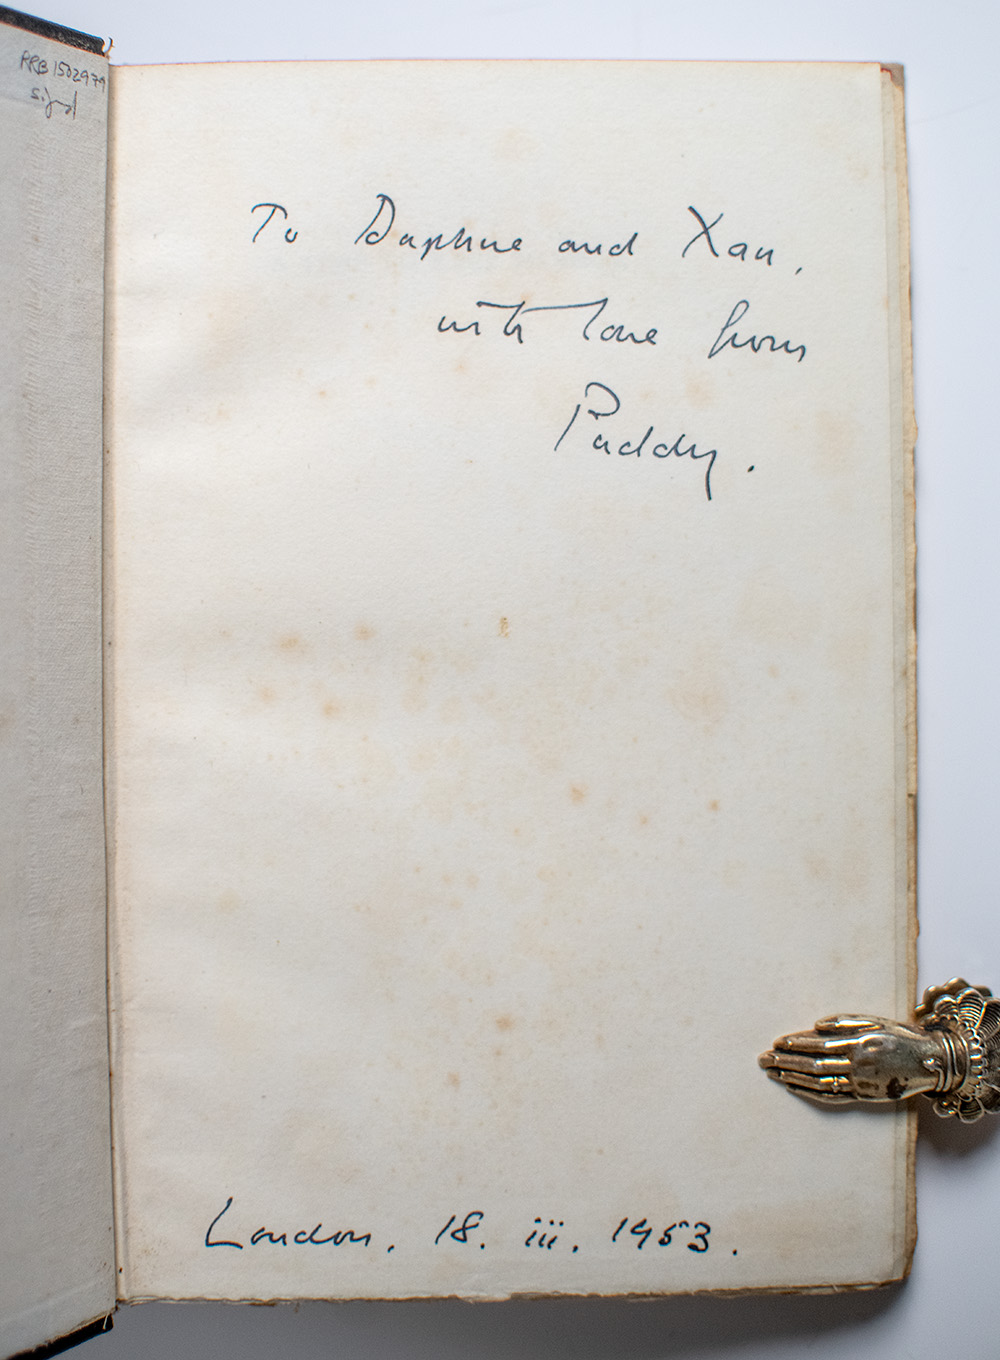 RRB 1502979
signed
To Daphne and Xan,
with love from
Paddy.
London, 18. iii. 1953.